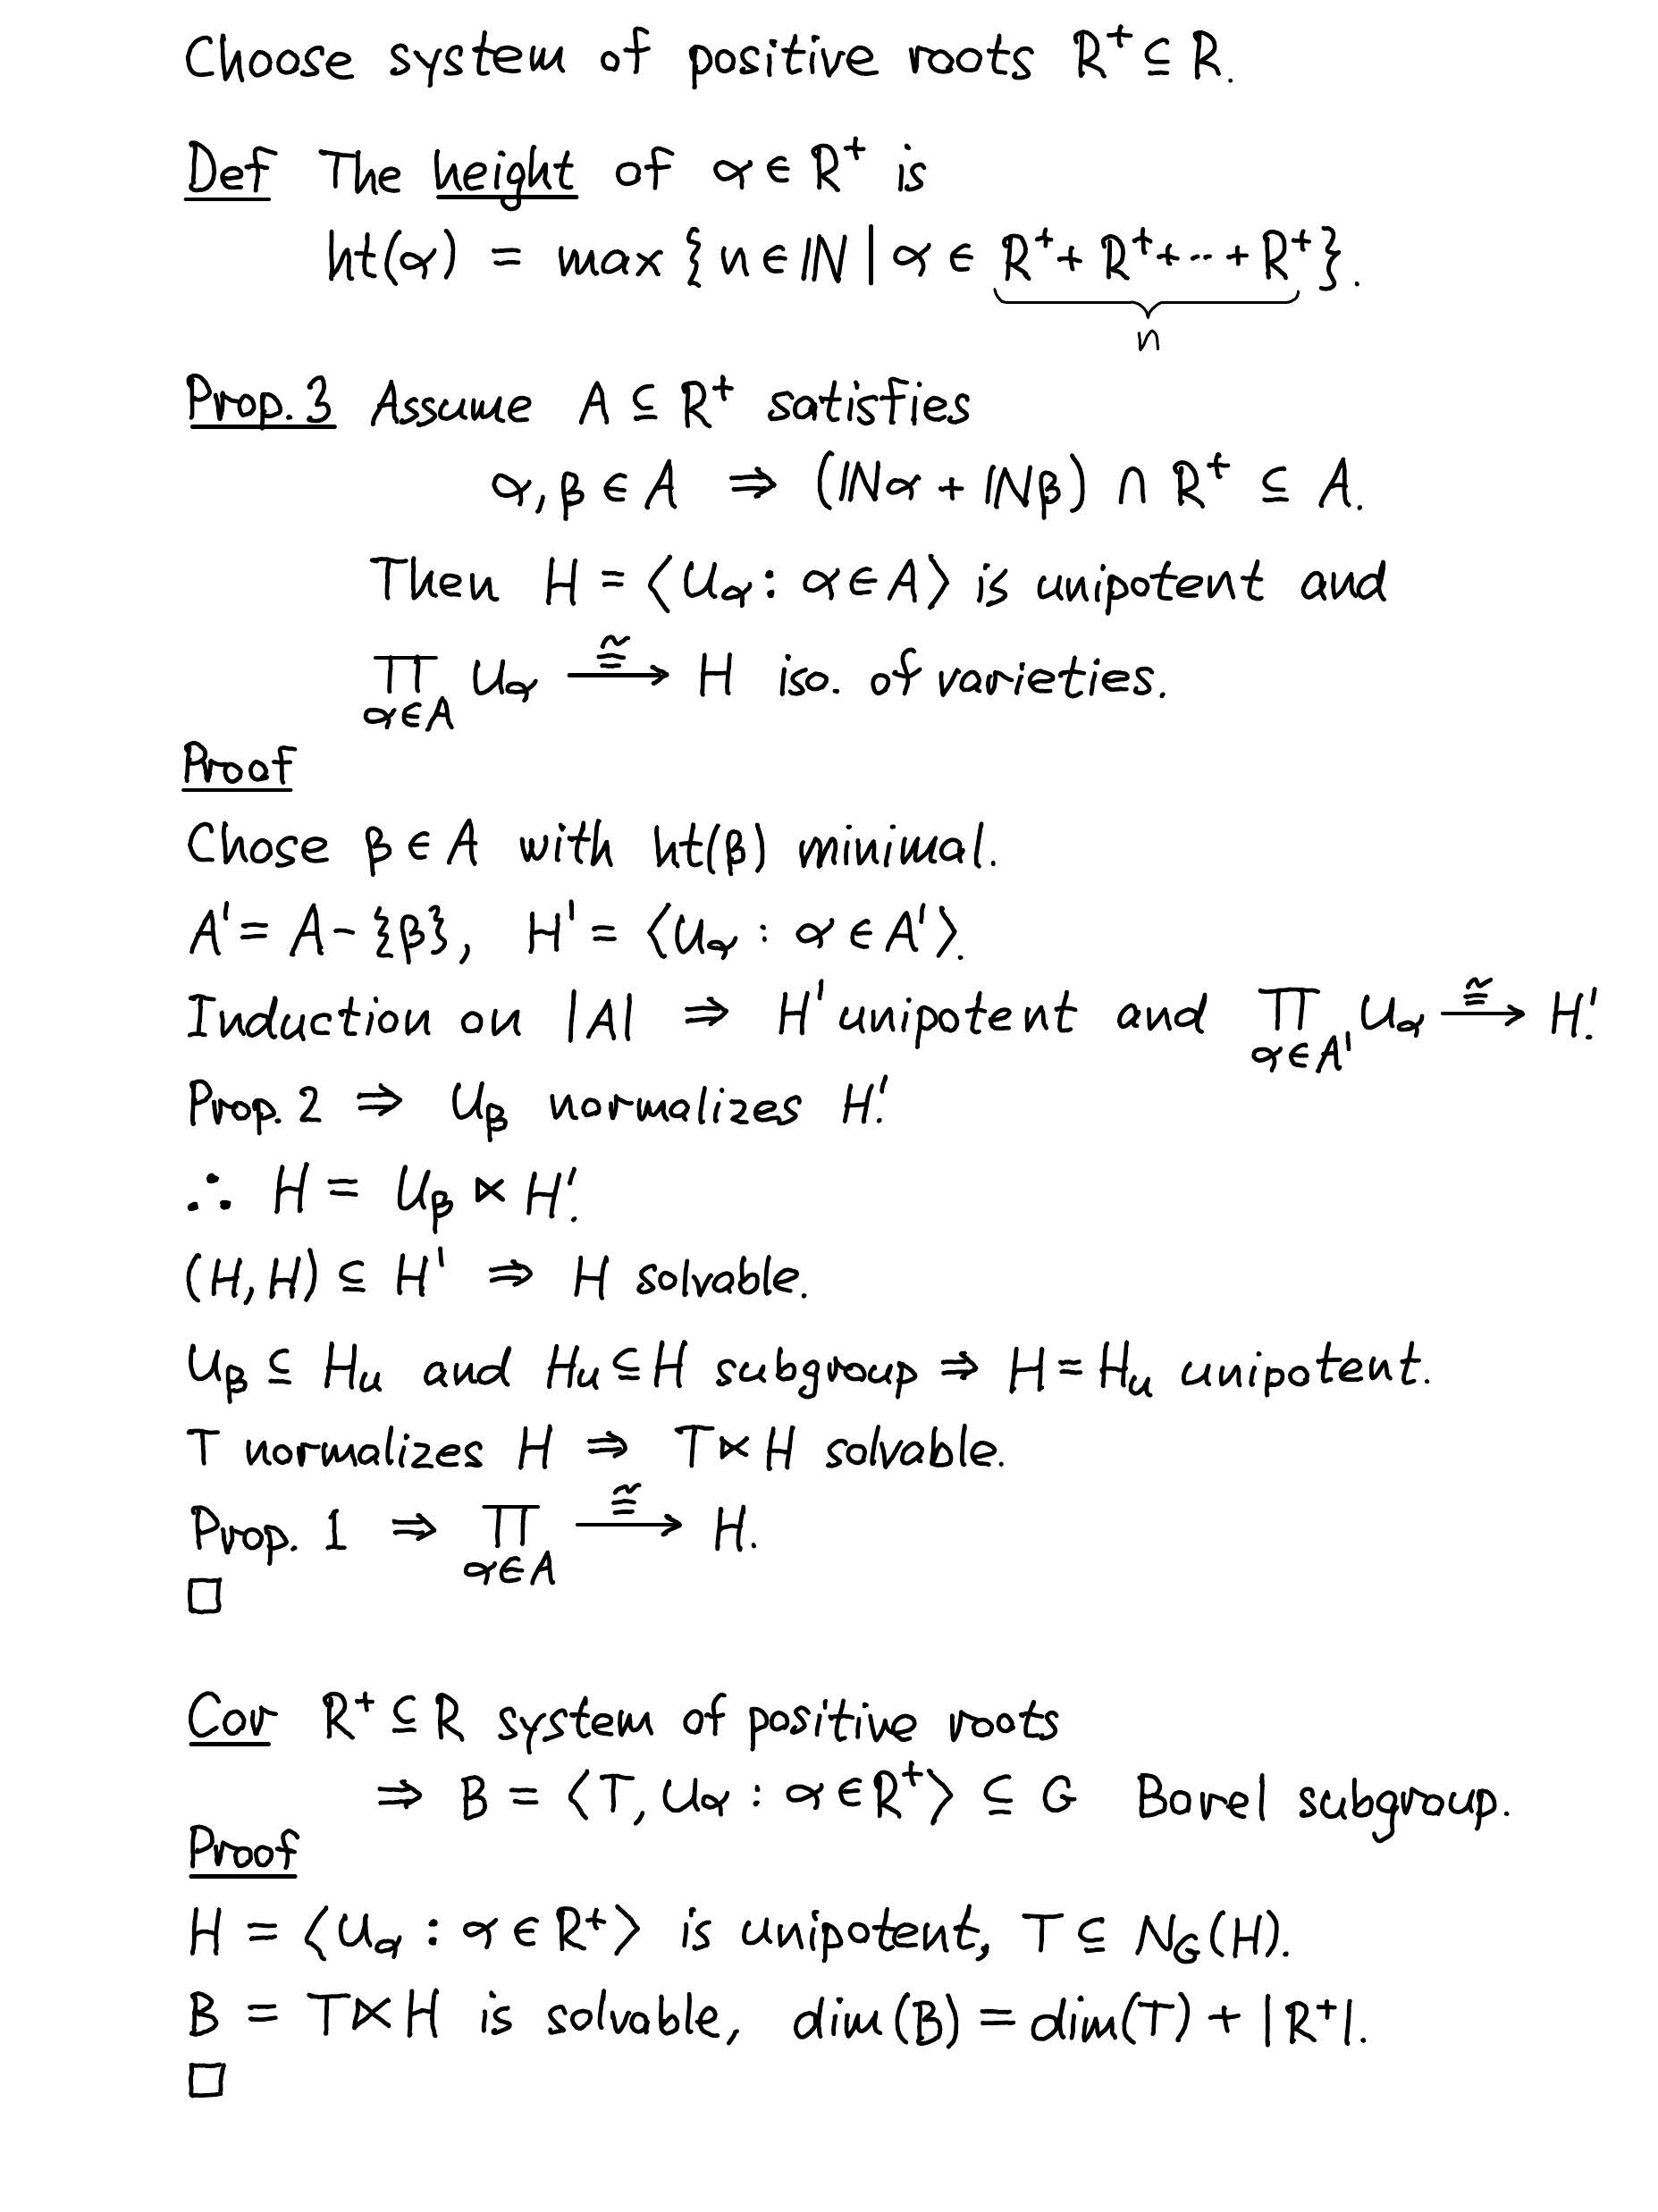 Choose system of positive roots R⁺ ⊆ R.
Def The height of α ∈ R⁺ is
ht(α) = max { n ∈ ℕ | α ∈ R⁺ + R⁺ + ·· + R⁺ }.
n
Prop. 3 Assume A ⊆ R⁺ satisfies
α, β ∈ A ⇒ (ℕα + ℕβ) ∩ R⁺ ⊆ A.
Then H = ⟨U_α : α ∈ A⟩ is unipotent and
∏_{α∈A} U_α ≅⟶ H iso. of varieties.
Proof
Chose β ∈ A with ht(β) minimal.
A' = A - {β}, H' = ⟨U_α : α ∈ A'⟩.
Induction on |A| ⇒ H' unipotent and ∏_{α∈A'} U_α ≅⟶ H'.
Prop. 2 ⇒ U_β normalizes H'.
∴ H = U_β ⋉ H'.
(H, H) ⊆ H' ⇒ H solvable.
U_β ⊆ H_u and H_u ⊆ H subgroup ⇒ H = H_u unipotent.
T normalizes H ⇒ T ⋉ H solvable.
Prop. 1 ⇒ ∏_{α∈A} ≅⟶ H.
□
Cor R⁺ ⊆ R system of positive roots
⇒ B = ⟨T, U_α : α ∈ R⁺⟩ ⊆ G Borel subgroup.
Proof
H = ⟨U_α : α ∈ R⁺⟩ is unipotent, T ⊆ N_G(H).
B = T ⋉ H is solvable, dim(B) = dim(T) + |R⁺|.
□